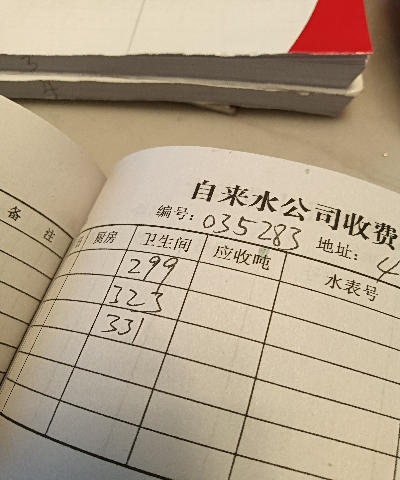 3
4
自来水公司收费
编号: 035283 地址: 4
备 注
厨房 卫生间 应收吨 水表号
299
323
331